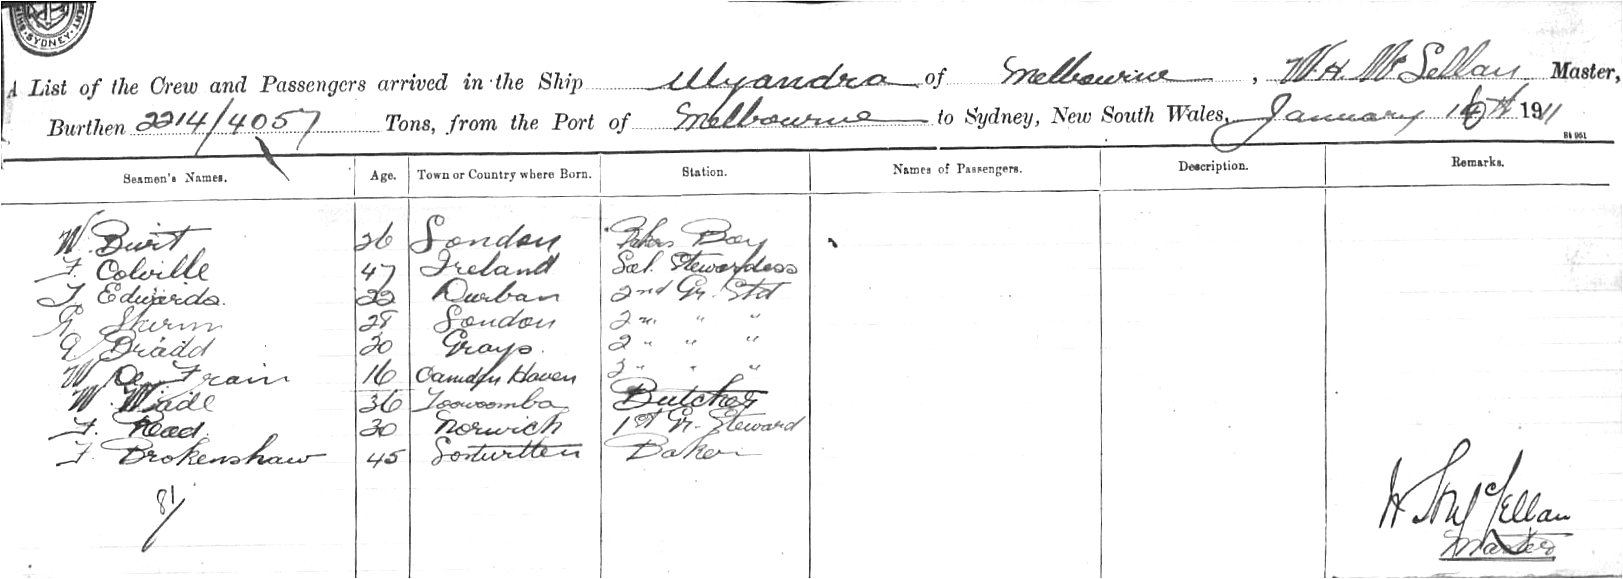 SYDNEY
A List of the Crew and Passengers arrived in the Ship Wyandra of Melbourne, W. H. McLellan Master,
Burthen 2214/4057 Tons, from the Port of Melbourne to Sydney, New South Wales, January 16th 1911
Seamen's Names. Age. Town or Country where Born. Station. Names of Passengers. Description. Remarks.
W. Burt 26 London Bakers Boy
F. Colville 47 Ireland Sal. Stewardess
T. Edwards. 22 Durban 2nd Gr. Std
28 London 2 " " "
G Bradd 30 Grays. 2 " " "
W De Frain 16 Camden Haven 2 " " "
W. Wade 36 Toowoomba Butcher
F. Read. 30 Norwich 1st Gr. Steward
F. Brokenshaw 45 Baker
81
McLellan
Master